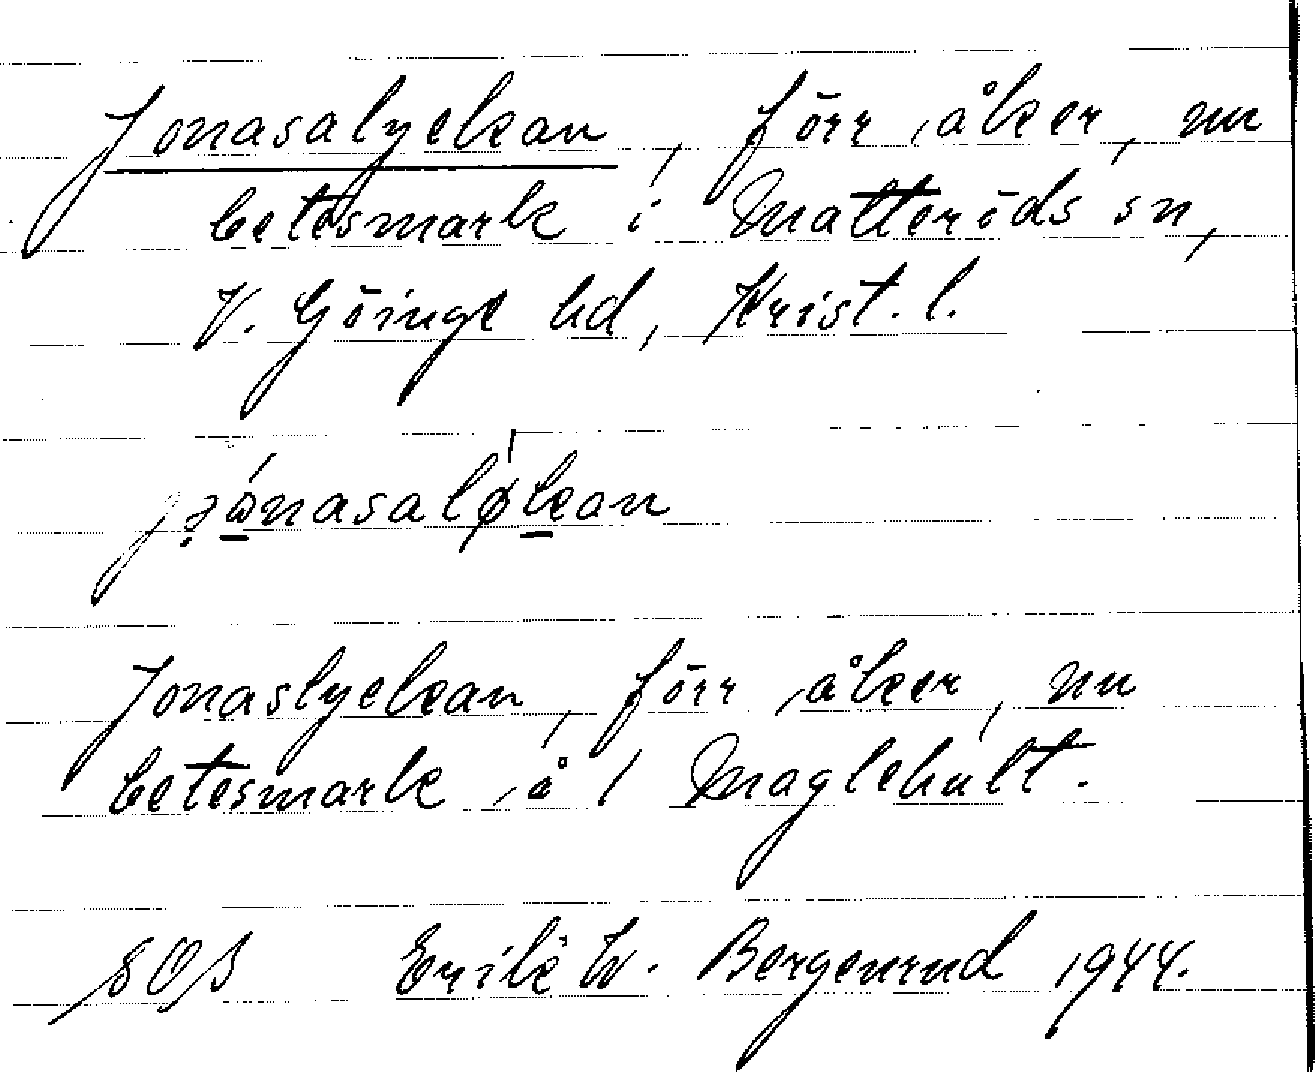 Jonasalyckan, förr åker, nu
betesmark i Matteröds sn,
V. Göinge hd, Krist. l.
Jonaslyckan, förr åker, nu
betesmark å 1 Maglehult.
SOS Erik W. Bergenrud 1944.